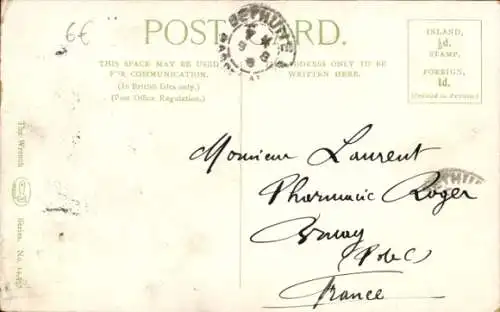 6€
POST CARD.
BETHUNE
THIS SPACE MAY BE USED
FOR COMMUNICATION.
(In British Isles only.)
(Post Office Regulation.)
ADDRESS ONLY TO BE
WRITTEN HERE.
INLAND,
½d.
STAMP.
FOREIGN,
1d.
(Printed in Saxony)
The Wrench
Series, No.
Monsieur Laurent
Pharmacie Roger
(P de C)
France